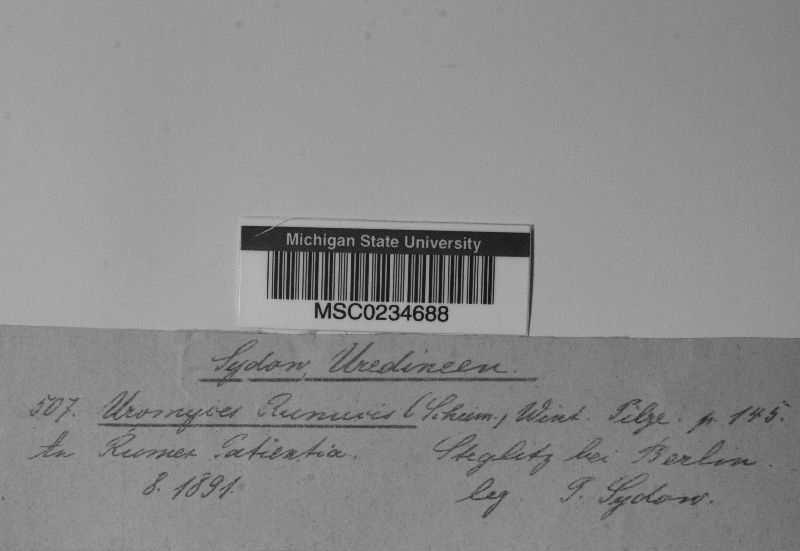 Michigan State University
MSC0234688
Sydow, Uredineen.
507. Uromyces Rumicis (Schum.) Wint. Pilze. p. 145.
An Rumex Patientia. Steglitz bei Berlin.
8. 1891. leg. P. Sydow.